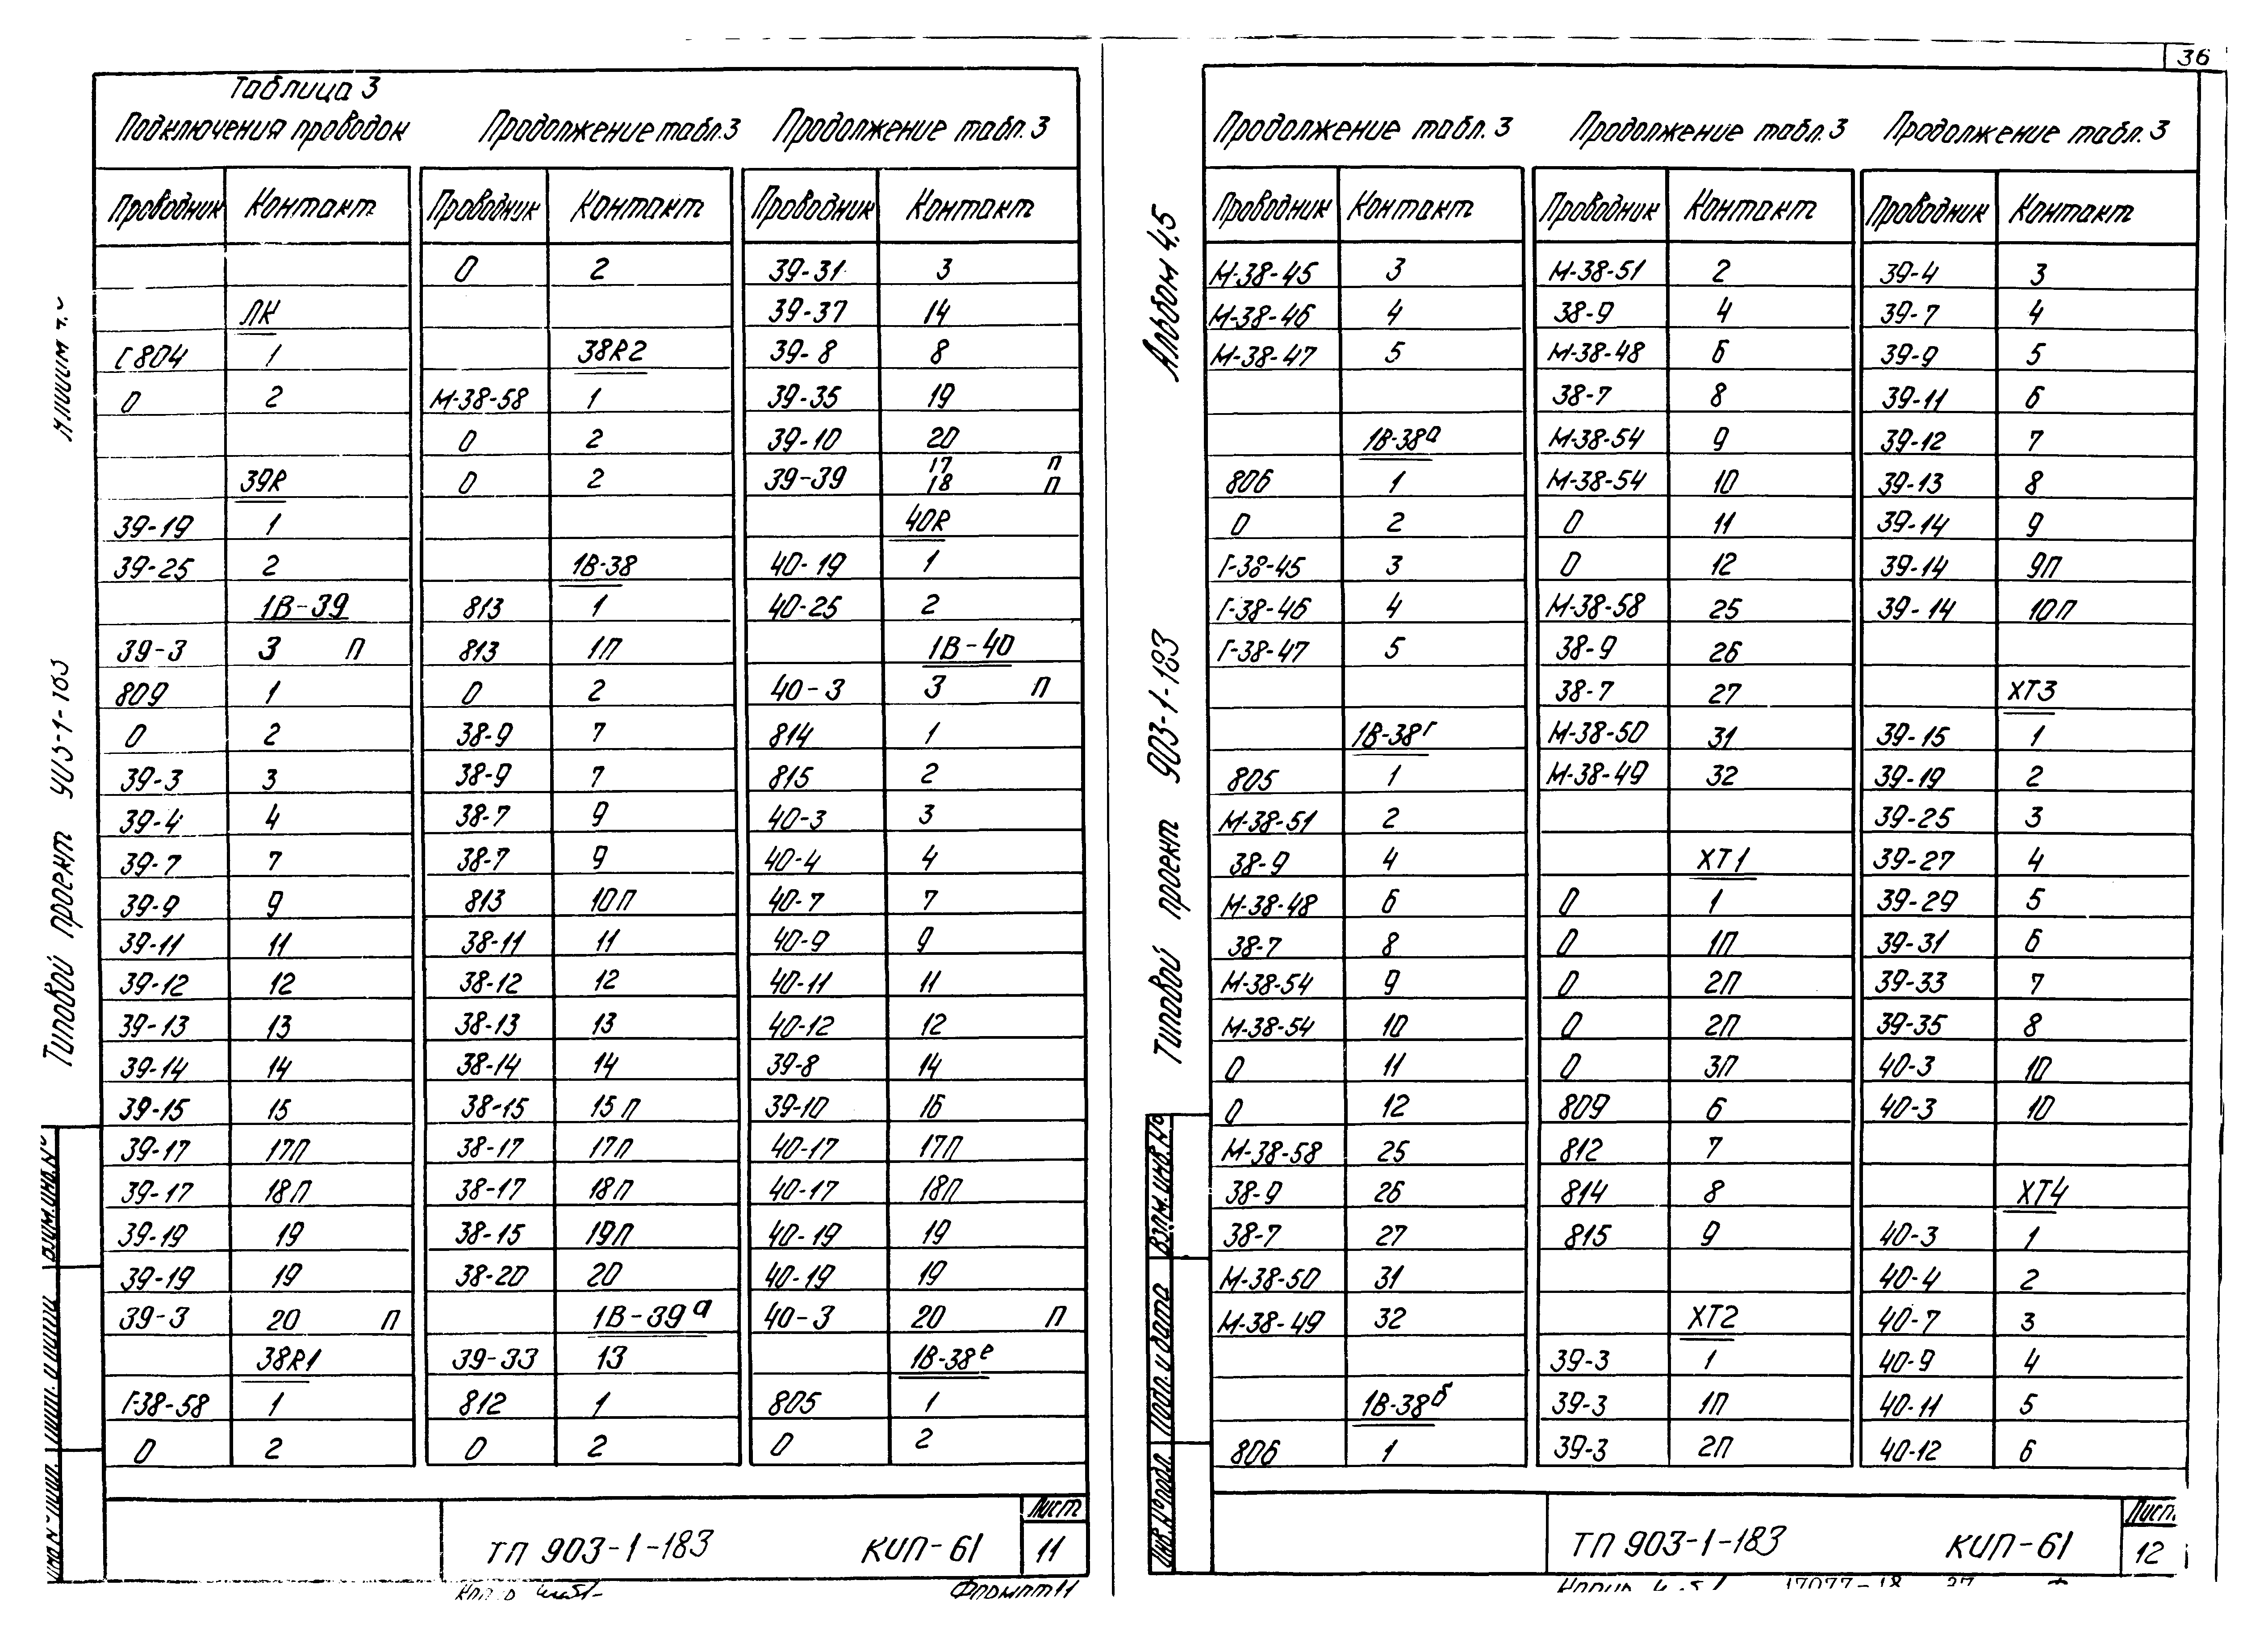 36
Таблица 3
Подключения проводок
Проводник Контакт
ЛК
Г804 1
0 2
39R
39-19 1
39-25 2
1В-39
39-3 3 П
809 1
0 2
39-3 3
39-4 4
39-7 7
39-9 9
39-11 11
39-12 12
39-13 13
39-14 14
39-15 15
39-17 17П
39-17 18П
39-19 19
39-19 19
39-3 20 П
38R1
Г-38-58 1
0 2
Продолжение табл.3
Проводник Контакт
0 2
38R2
М-38-58 1
0 2
0 2
1В-38
813 1
813 1П
0 2
38-9 7
38-9 7
38-7 9
38-7 9
813 10П
38-11 11
38-12 12
38-13 13
38-14 14
38-15 15П
38-17 17П
38-17 18П
38-15 19П
38-20 20
1В-39а
39-33 13
812 1
0 2
Продолжение табл. 3
Проводник Контакт
39-31 3
39-37 14
39-8 8
39-35 19
39-10 20
39-39 17 П
18 П
40R
40-19 1
40-25 2
1В-40
40-3 3 П
814 1
815 2
40-3 3
40-4 4
40-7 7
40-9 9
40-11 11
40-12 12
39-8 14
39-10 16
40-17 17П
40-17 18П
40-19 19
40-19 19
40-3 20 П
1В-38е
805 1
0 2
Типовой проект
ТП 903-1-183 КИП-61
Лист
11
Формат11
Продолжение табл. 3
Проводник Контакт
М-38-45 3
М-38-46 4
М-38-47 5
1В-38а
806 1
0 2
Г-38-45 3
Г-38-46 4
Г-38-47 5
1В-38г
805 1
М-38-51 2
38-9 4
М-38-48 6
38-7 8
М-38-54 9
М-38-54 10
0 11
0 12
М-38-58 25
38-9 26
38-7 27
М-38-50 31
М-38-49 32
1В-38б
806 1
Продолжение табл. 3
Проводник Контакт
М-38-51 2
38-9 4
М-38-48 6
38-7 8
М-38-54 9
М-38-54 10
0 11
0 12
М-38-58 25
38-9 26
38-7 27
М-38-50 31
М-38-49 32
ХТ1
0 1
0 1П
0 2П
0 2П
0 3П
809 6
812 7
814 8
815 9
ХТ2
39-3 1
39-3 1П
39-3 2П
Продолжение табл. 3
Проводник Контакт
39-4 3
39-7 4
39-9 5
39-11 6
39-12 7
39-13 8
39-14 9
39-14 9П
39-14 10П
ХТ3
39-15 1
39-19 2
39-25 3
39-27 4
39-29 5
39-31 6
39-33 7
39-35 8
40-3 10
40-3 10
ХТ4
40-3 1
40-4 2
40-7 3
40-9 4
40-11 5
40-12 6
Типовой проект 903-1-183 Альбом 4.5
Инв.№подл. Подп. и дата Взам.инв.№
ТП 903-1-183 КИП-61
Лист
12